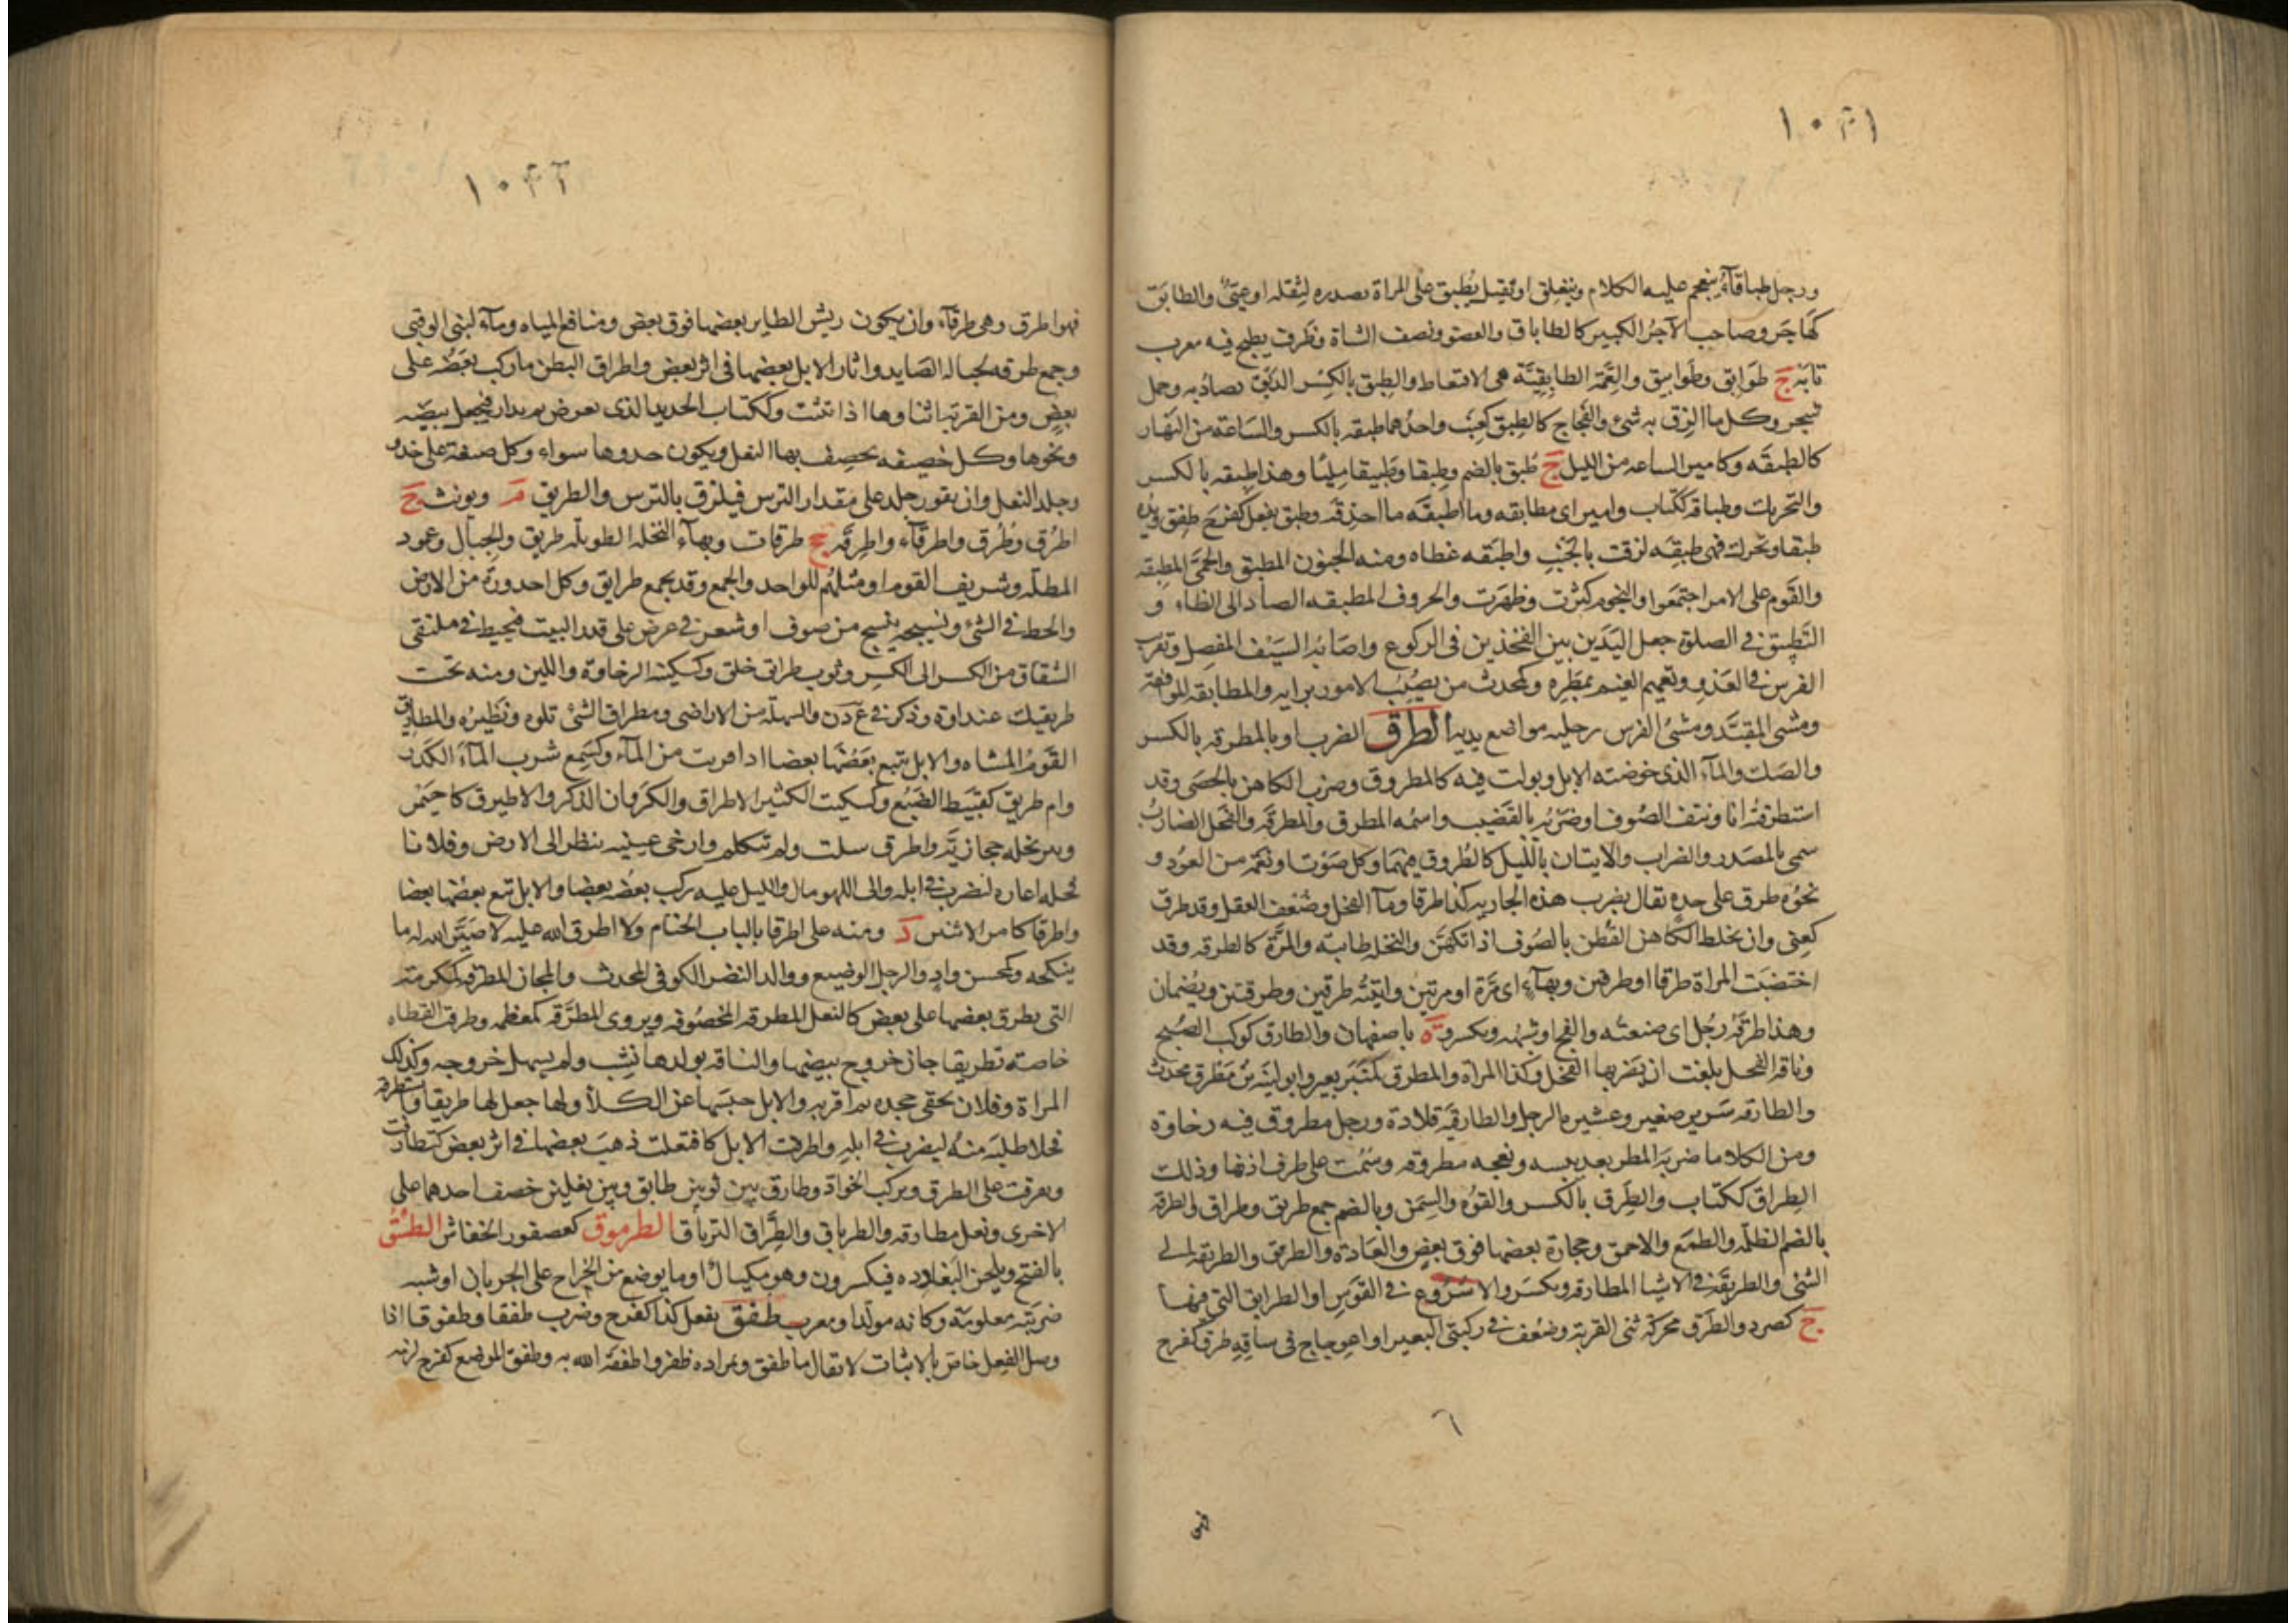 ١٠٣١
ورجل طباقآء ينعجم عليه الكلام وينغلق او ثقيل يُطبق على المراة بصدره لثقله او عيىٌّ والطابَق
كهَاجَر وصاحب الآجرُ الكبير كالطاباق والعضو ونصف الشاة وظَرف يطبخ فيه معرب
تابَه ج طَوابق وطَوابيق والعِمَّة الطابقِيَّة هى الاقتعاط والطِبق بالكسْر الدَبَق يصادُ به وحمل
شجر وكل ما الزق به شئ والفجاج كالطِبق كعِنَب واحدُهما طبقه بالكسر والسَاعة من النَهار
كالطبقَه وكامير الساعه من الليل ج طُبق بالضم وطِبقا وطَبيقا مليّا وهذا طبقه بالكسر
والتحريك وطباقه ككتاب وامير اى مطابقه وما اطبقَه ما احذقه وطبق يفعل كفرحَ طفِق ويدُه
طبقا ويحرك فهى طبِقَه لزقت بالجَنبِ واطبَقه غطاه ومنه الجنون المطبق والحمَّى المطبِقه
والقَوم على الامر اجتمَعوا والنجوم كثرت وظهَرت والحروف المطبقه الصاد الى الظاء و
التَطبيق فى الصلوة جعل اليَدَين بين الفخذين فى الركوع واصَابه السَيف المفصِل وتقرب
الفرس فى العَدْو وتعميم الغيم بمَطره وكمحدث من يصُيبُ الامور برايه والمطابقه الموافقة
ومشى المقيَّد ومشىُ الفرس رجليه مواضع يديه الطرق الضرب او بالمطرقه بالكسر
والصَك والمآء الذى خوضته الابل وبولت فيه كالمطروق وضرب الكاهن بالحصَى وقد
استطرقتُه انا ونتف الصُوف اوضَربُه بالقَضيب واسمُه المطرق والمطرقَه والفحل الضاربُ
سمى بالمصَدر والضراب والايتان باللَيل كالطُروق فيهمَا وكل صَوْت او نَغمَه من العوُد و
نحوُه طرق على حدِه تقال يضرب هذه الجاريه كذا طرقا ومآ الفحل وضَعف العقل وقد طرق
كعنِى وان يخلط الكَاهن القُطن بالصُوف اذا تكهَّن والنخلة طابيه والمرَّة كالطرقه وقد
اختضبَت المراة طرقا او طرقين وبهآء اى مَرَّة او مرتين واتيتُه طرقين وطرقتين ويُضمان
وهذا طرقَهُ رَجُل اى صنعتُه والفخ او شبهُه ويكسر وة باصفهان والطارق كوكب الصُبح
وناقة الفحل بلغت ان يَضربها الفحل وكذا المراة والمطرق كمنبَر بعير وابو لينَه بن مطرق محدث
والطارقه سَرير صغير وعشيره الرجل والطارقيَّه قلادة ورجل مطروق فيه رخاوة
ومن الكلا ما ضربَه المطر بعد يبسه ونعجه مطروقه وسُمت على طرف اذنها وذلك
الطِراق ككتاب والطِرق بالكسر والقوُه والسِمَن وبالضم جمع طريق وطراق والطرقه
بالضم الظلمه والطمَع والاحمق وحجارة بعضها فوق بعض والعَادة والطرق والطريقه الى
الشئ والطريقَه فى الاشيا المطارقه ويكسَر والاسْرُوع فى القوس او الطرايق التى فيها
ج كصرد والطَرق محركة ثنى القربة وضعف فى ركبتى البعير او اعوجاج فى ساقِهِ طرق كفرح
١٠٣٢
فهو اطرق وهى طرقآء وان يكون ريش الطاير بعضها فوق بعض ومنافع المياه ومآء لبنى الوقبى
وجمع طرقه لحباله الصَايد واثار الابل بعضها فى اثر بعض واطراق البطن ما ركب بَعَضُه على
بعض ومن القربَه اثناوها اذا تثنت وككتاب الحديد الذى يعرض ثم يدار فيجعل بيضَه
ونحوها وكل خصيفه يخصِف بها النعل ويكون حدوها سواء وكل صنعة على خدو
وجلد النعل وان يقور جلد على مقدار الترس فيلزق بالترس والطريق مـ ويونث ج
اطرُق وطُرُق واطرقآء واطرِقَه جج طرقات وبهآء النخله الطويله طريق والجبال وعمود
المظلّه وشريف القوم او مثلهُم للواحد والجمع وقد يجمع طرايق وكل احدورَة من الارض
والخط فى الشئ ونسيجه ينسج من صوف او شعر فى عرض على قدر البيت فيخيط فى ملتقى
الشقاق من الكسر الى الكسر وثوب طرايق خلق وكسكينه الرخاوة واللين ومنه تحت
طريقتك عنداوة وذكر فى ع د ن والسهلة من الاراضى ومطراق الشئ تلوه ونظيرُه والمطاريق
القَومُ المشاه والابل يتبع بَعَضُها بعضا اذا قربت من المآء وكسَمع شرب المآءَ الكَدَر
وام طريق كقبَيط الضَبُع وكسكيت الكثير الاطراق والكروان الذكر والاطيرق كاحيَمر
وبه نخله حجازيَّه واطرق سكت ولم تتكلم وارخى عينيه ينظر الى الارض وفلانا
فحله اعاره ليضرب فى ابله والى اللهو مال والليل عليه ركب بعضُه بعضا والابل تبع بعضُها بعضا
واطرقا كامر الاثنين د ومنه على اطرقا باليات الخيام ولا اطرق الله عليه لا صَيَّر الله له ما
ينكحه وكمحسن وادٍ والرجل الوضيع ووالد النضر الكوفى المحدث والمجان المطرقه كمكرمة
التى يطرق بعضها على بعض كالنعل المطرقه المخصُوفه ويروى المطَرَّقه كمعظمه وطرقت القطاه
خاصة تطريقا حان خروج بيضها والناقه بولدها نشِب ولم يسهل خروجه وكذلك
المراة وفلان بحقى جحده ثم اقر به والابل حبسَها عن الكَلأ ولها جعل لها طريقا واستطرقه
فحلا طلبَه منُه ليضرب فى ابلِه واطرقت الابل كافتعلت ذهبَ بعضها فى اثر بعض كتطارقت
وتعرقت على الطرق ويركب الجوادَّ وطارق بين ثوبين طابق وبين نعلين خصف احدهما على
الاخرى ونعل مطارقه والطرياق والطِرَّاق الترياق الطرموق كعصفور الخفاش الطَسْقُ
بالفتح ويلحن البَغادِده فيكسرون وهو مكيالٌ او ما يوضع من الخِراج على الجربان او شبه
ضَريبَة معلومَه وكانه مولّد او معرب طفق يفعل كذا كفرح وضَرب طفقا وطفوقا اذا
وصل الفعل خاص بالاثبات لا يقال ما طفق وبمراده ظفر واطفقَه الله به وطفق الموضع كفرح لزمه
٦